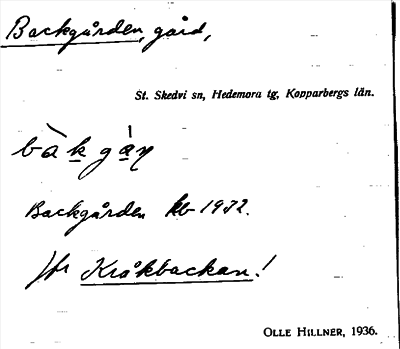 Backgården, gård,
St. Skedvi sn, Hedemora tg, Kopparbergs län.
bàkgàṇ
Backgården kb 1932.
Jfr Kråkbackan!
OLLE HILLNER, 1936.